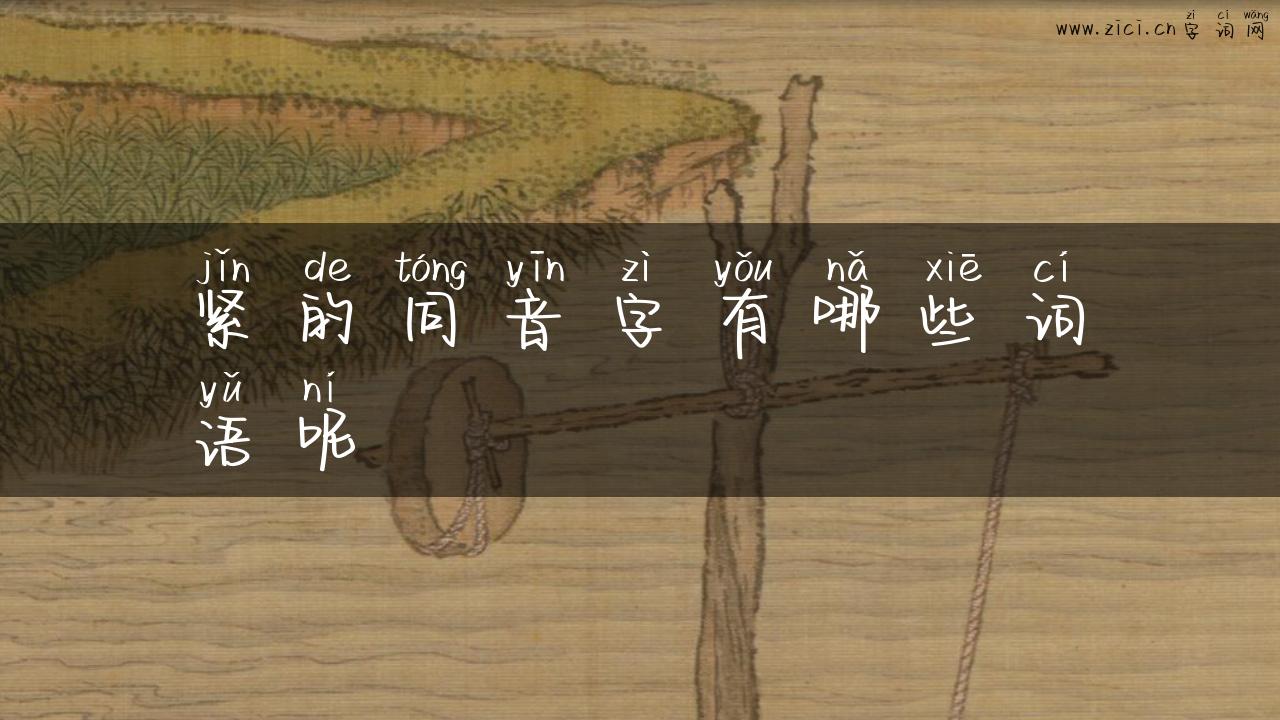 zì cí wǎng
www.zici.cn字词网
jǐn de tóng yīn zì yǒu nǎ xiē cí
紧的同音字有哪些词
yǔ ní
语呢